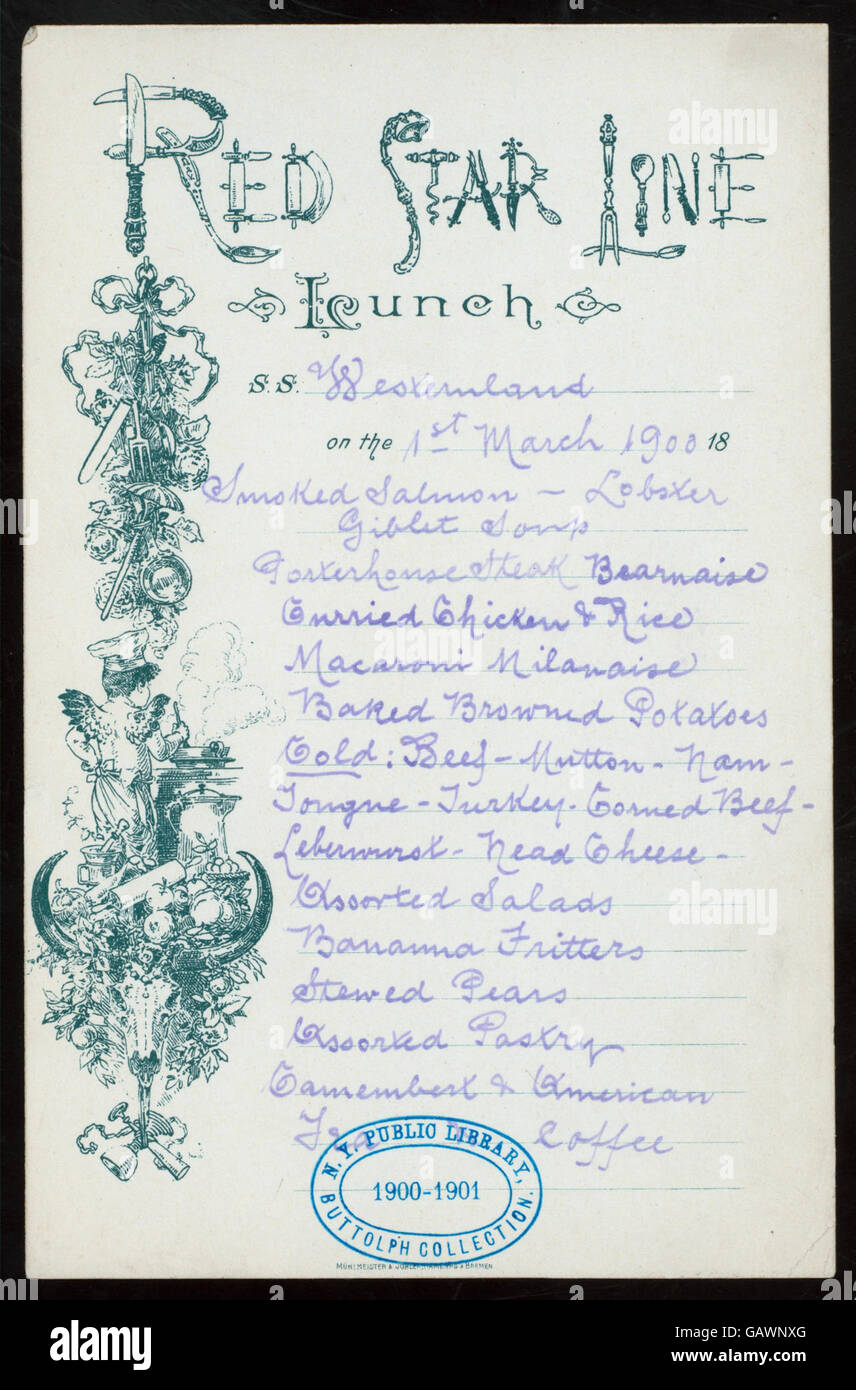 RED STAR LINE
Lunch
S.S. Westernland
on the 1st March 1900 18
Smoked Salmon - Lobster
Giblet Soup
Porterhouse Steak Bearnaise
Curried Chicken & Rice
Macaroni Milanaise
Baked Browned Potatoes
Cold: Beef - Mutton - Ham -
Tongue - Turkey - Corned Beef -
Leberwurst - Head Cheese -
Assorted Salads
Bananna Fritters
Stewed Pears
Assorted Pastry
Camembert & American
Tea Coffee
N.Y. PUBLIC LIBRARY,
1900-1901
BUTTOLPH COLLECTION.
MÜHLMEISTER & BREMEN
alamy stock photo
GAWNXG
www.alamy.com